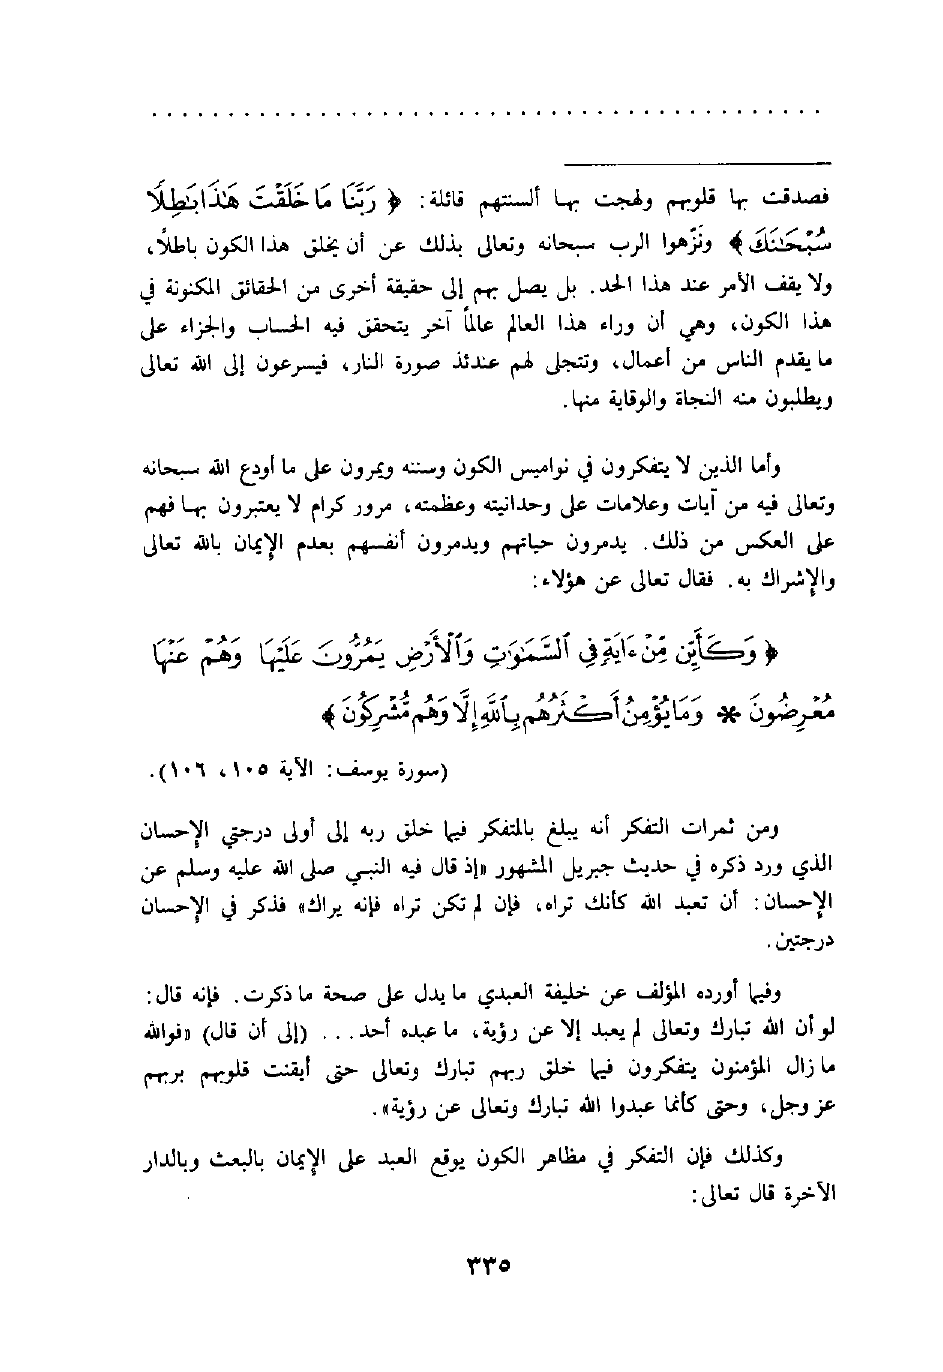 فصدقت بها قلوبهم ولهجت بها ألسنتهم قائلة: ﴿ رَبَّنَا مَا خَلَقْتَ هَٰذَا بَٰطِلًا
سُبْحَٰنَكَ ﴾ ونَزّهوا الرب سبحانه وتعالى بذلك عن أن يخلق هذا الكون باطلاً،
ولا يقف الأمر عند هذا الحد. بل يصل بهم إلى حقيقة أخرى من الحقائق المكنونة في
هذا الكون، وهي أن وراء هذا العالم عالماً آخر يتحقق فيه الحساب والجزاء على
ما يقدم الناس من أعمال، وتتجلى لهم عندئذ صورة النار، فيسرعون إلى الله تعالى
ويطلبون منه النجاة والوقاية منها.
وأما الذين لا يتفكرون في نواميس الكون وسننه ويمرون على ما أودع الله سبحانه
وتعالى فيه من آيات وعلامات على وحدانيته وعظمته، مرور كرام لا يعتبرون بها فهم
على العكس من ذلك. يدمرون حياتهم ويدمرون أنفسهم بعدم الإيمان بالله تعالى
والإشراك به. فقال تعالى عن هؤلاء:
﴿ وَكَأَيِّن مِّنْ ءَايَةٍ فِي ٱلسَّمَٰوَٰتِ وَٱلْأَرْضِ يَمُرُّونَ عَلَيْهَا وَهُمْ عَنْهَا
مُعْرِضُونَ * وَمَا يُؤْمِنُ أَكْثَرُهُم بِٱللَّهِ إِلَّا وَهُم مُّشْرِكُونَ ﴾
(سورة يوسف: الآية ١٠٥، ١٠٦).
ومن ثمرات التفكر أنه يبلغ بالمتفكر فيما خلق ربه إلى أولى درجتي الإحسان
الذي ورد ذكره في حديث جبريل المشهور «إذ قال فيه النبي صلى الله عليه وسلم عن
الإحسان: أن تعبد الله كأنك تراه، فإن لم تكن تراه فإنه يراك» فذكر في الإحسان
درجتين.
وفيما أورده المؤلف عن خليفة العبدي ما يدل على صحة ما ذكرت. فإنه قال:
لو أن الله تبارك وتعالى لم يعبد إلا عن رؤية، ما عبده أحد... (إلى أن قال) «فوالله
ما زال المؤمنون يتفكرون فيما خلق ربهم تبارك وتعالى حتى أيقنت قلوبهم بربهم
عز وجل، وحتى كأنما عبدوا الله تبارك وتعالى عن رؤية».
وكذلك فإن التفكر في مظاهر الكون يوقع العبد على الإيمان بالبعث وبالدار
الآخرة قال تعالى:
٣٣٥